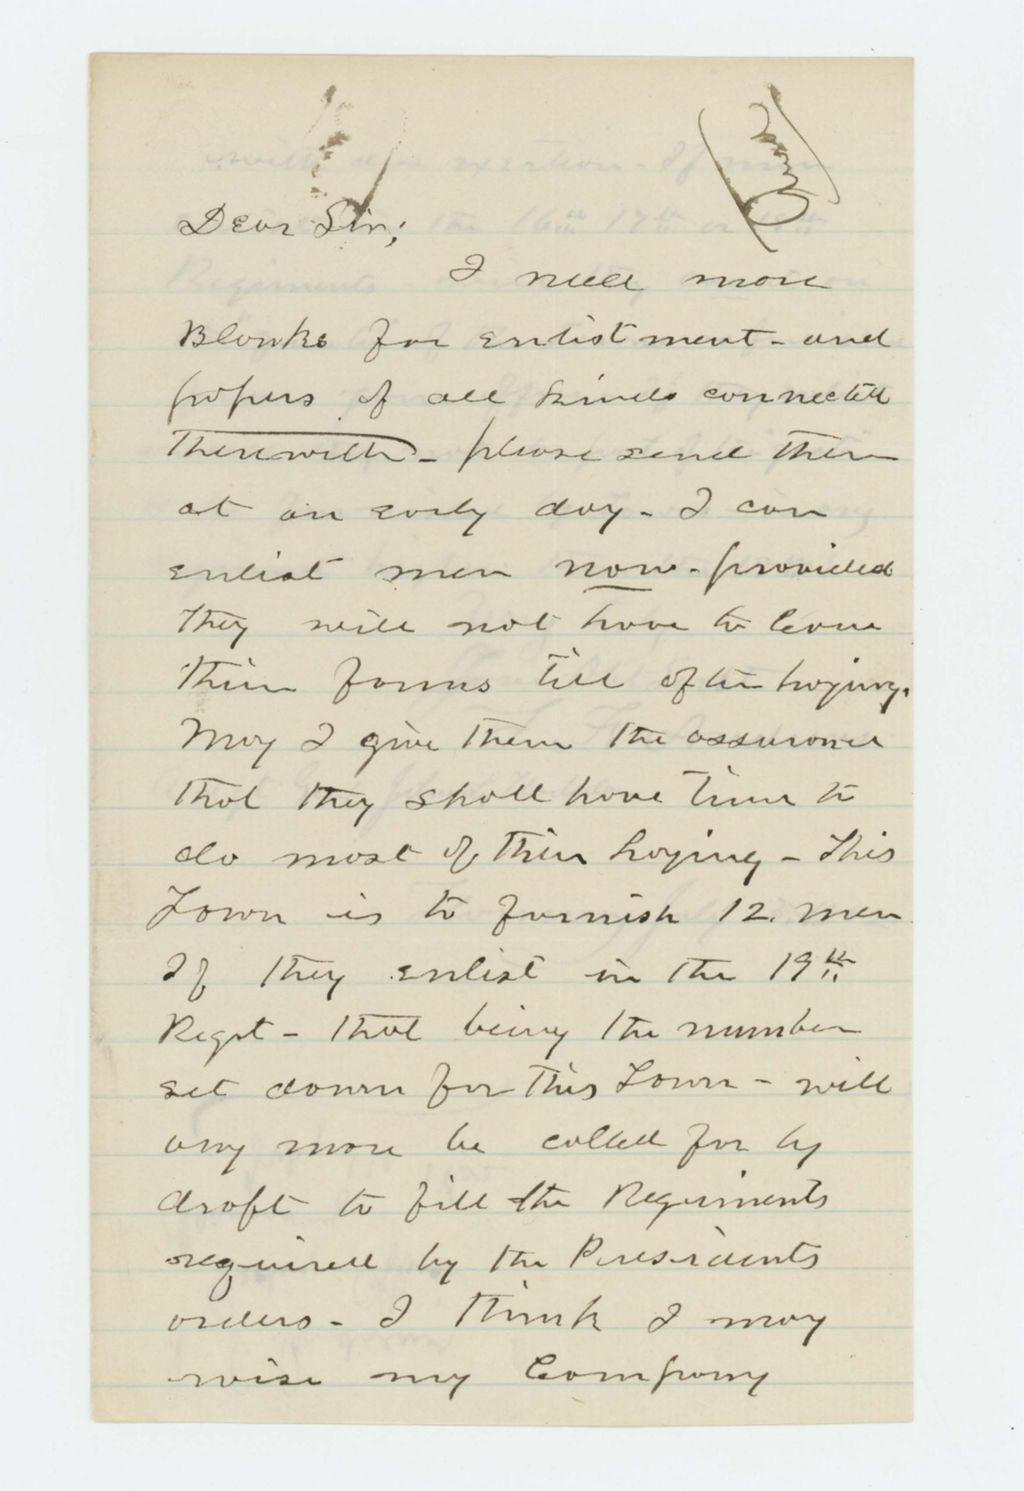 Dear Sir;
I need more
Blanks for enlistment - and
papers of all kinds connected
therewith - please send them
at an early day - I can
enlist men now - provided
they will not have to leave
their farms till after haying.
May I give them the assurance
that they shall have time to
do most of their haying - This
Town is to furnish 12. men
If they enlist in the 19th
Regt - that being the number
set down for this Town - will
any more be called for by
draft to fill the Regiments
required by the Presidents
orders - I think I may
raise my Company